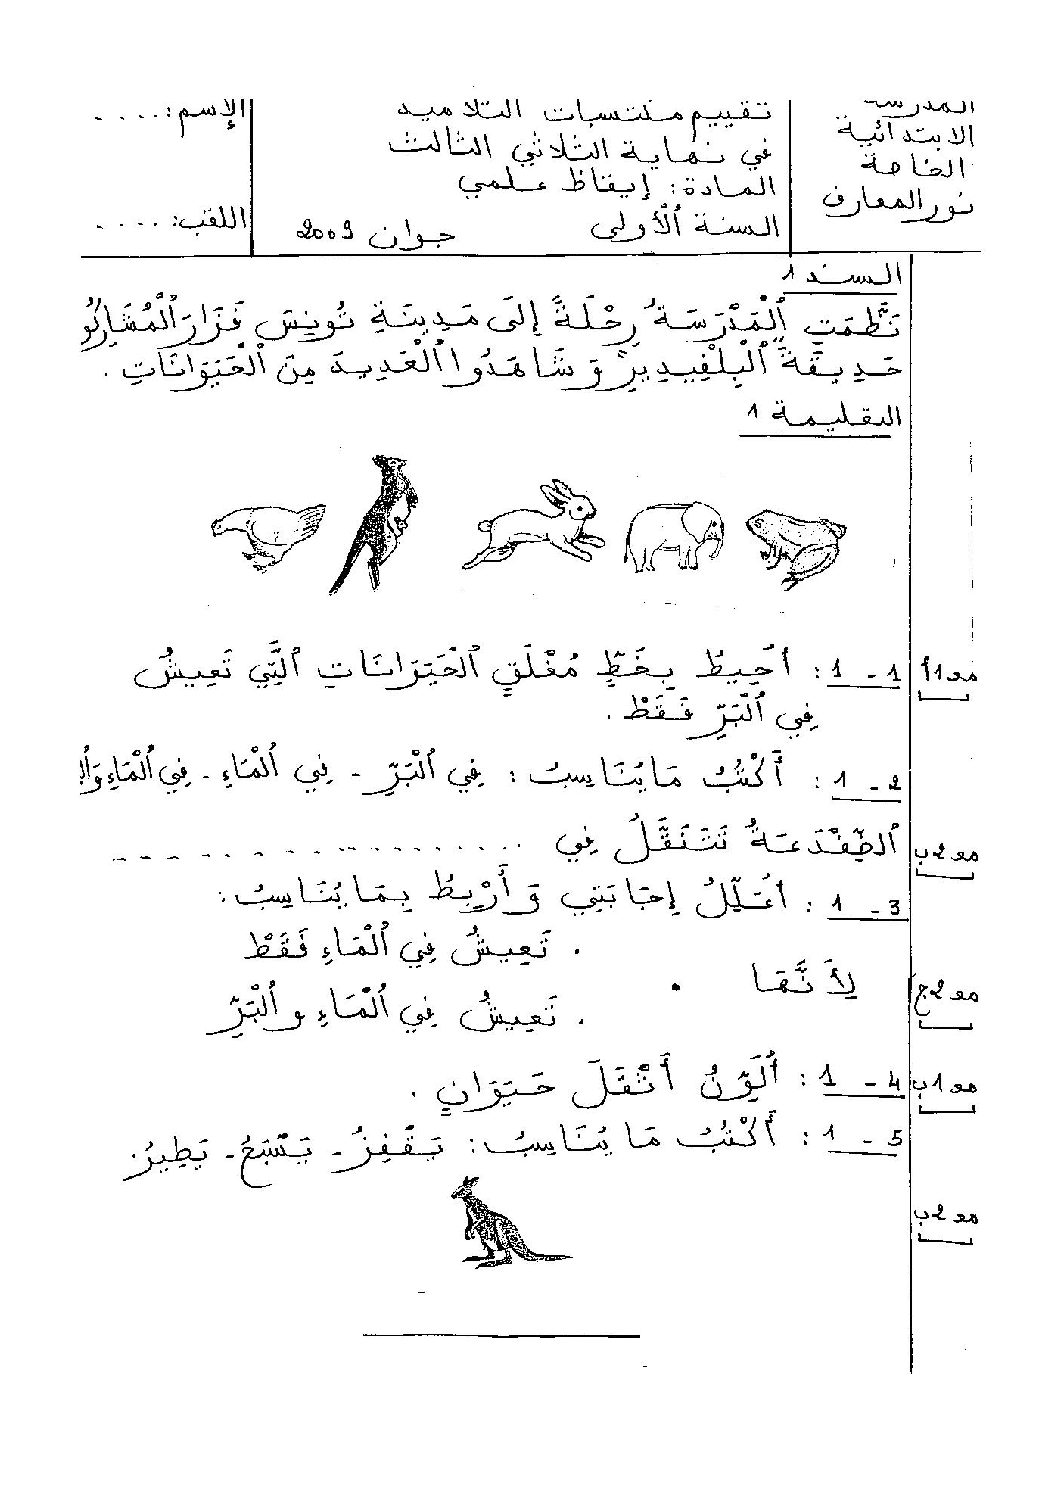 المدرسة
الابتدائية
الخاصة
نور المعارف
تقييم مكتسبات التلاميذ
في نهاية الثلاثي الثالث
المادة: إيقاظ علمي
السنة الأولى جوان 2009
الإسم: ....
اللقب: ....
السند 1
نَظَّمَتِ ٱلْمَدْرَسَةُ رِحْلَةً إِلَى مَدِينَةِ تُونِسَ فَزَارَ ٱلْمُشَارِكُو
حَدِيقَةَ ٱلْبِلْفِيدِيرِ وَشَاهَدُوا ٱلْعَدِيدَ مِنَ ٱلْحَيَوَانَاتِ .
التعليمة 1
1 - 1 : أُحِيطُ بِخَطٍّ مُغْلَقٍ ٱلْحَيَوَانَاتِ ٱلَّتِي تَعِيشُ
فِي ٱلْبَرِّ فَقَطْ .
مع 1أ
2 - 1 : أَكْتُبُ مَا يُنَاسِبُ : فِي ٱلْبَرِّ - فِي ٱلْمَاءِ - فِي ٱلْمَاءِ وَٱلْب
ٱلضِّفْدَعَةُ تَتَنَقَّلُ فِي ................
مع 2ب
3 - 1 : أُعَلِّلُ إِجَابَتِي وَأَرْبِطُ بِمَا يُنَاسِبُ :
. تَعِيشُ فِي ٱلْمَاءِ فَقَطْ
لِأَنَّهَا .
. تَعِيشُ فِي ٱلْمَاءِ وٱلْبَرِّ
مع 2ج
4 - 1 : أُلَوِّنُ أَثْقَلَ حَيَوَانٍ .
مع 1ب
5 - 1 : أَكْتُبُ مَا يُنَاسِبُ : يَقْفِزُ - يَسْبَحُ - يَطِيرُ.
مع 2ب